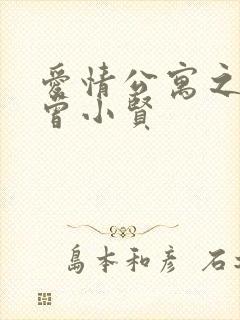 愛情公寓之
曾小賢
島本和彥 石